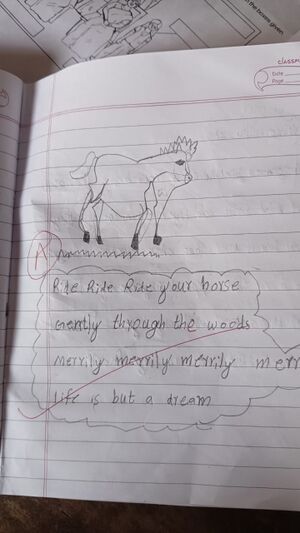 the boxes given
CLASSM
Date
Page
A
Ride Ride Ride your horse
Gently through the woods
merrily merrily merrily merr
Life is but a dream